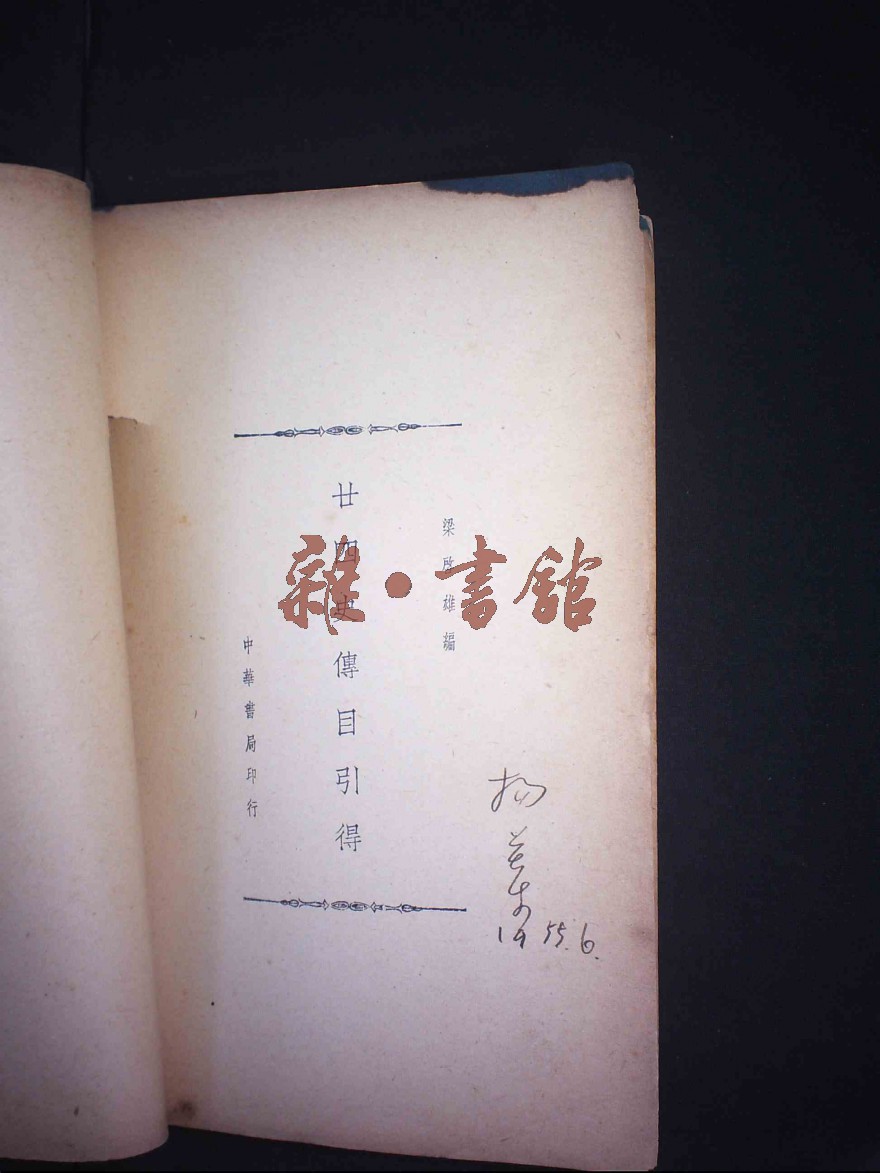 梁啟雄編
廿四史傳目引得
中華書局印行
雜·書館
1955.6.